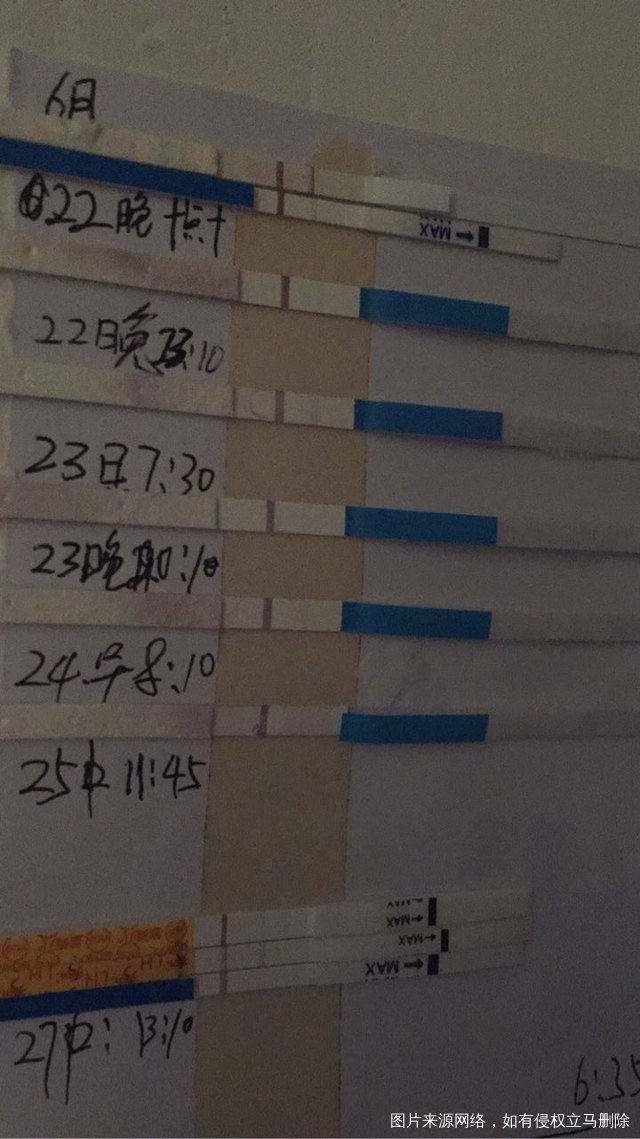 6月
22晚十点十
MAX
22日晚 :10
23日7:30
23晚 :10
24早8:10
25中11:45
MAX
MAX
MAX
MAX
LH LH
27中: 13:10
6:35
图片来源网络，如有侵权立马删除